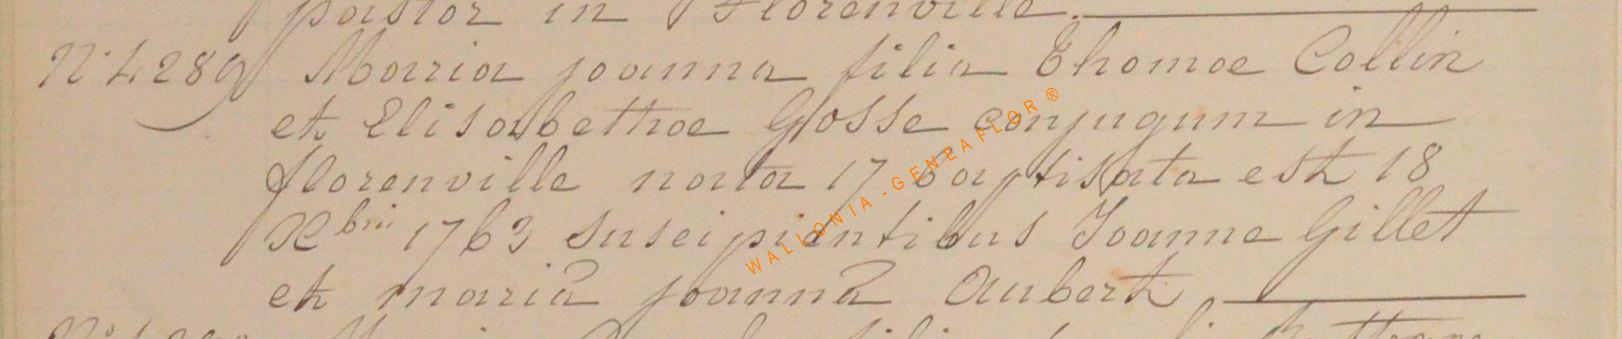 pastor in Florenville.
N° 4289 Maria joanna filia Thomae Collin
et Elisabethae Gosse conjugum in
florenville nata 17 baptisata est 18
Xbris 1763 suscipientibus Joanne Gillet
et mariâ joannâ Aubert
WALLONIA - GENEAFLOR ®